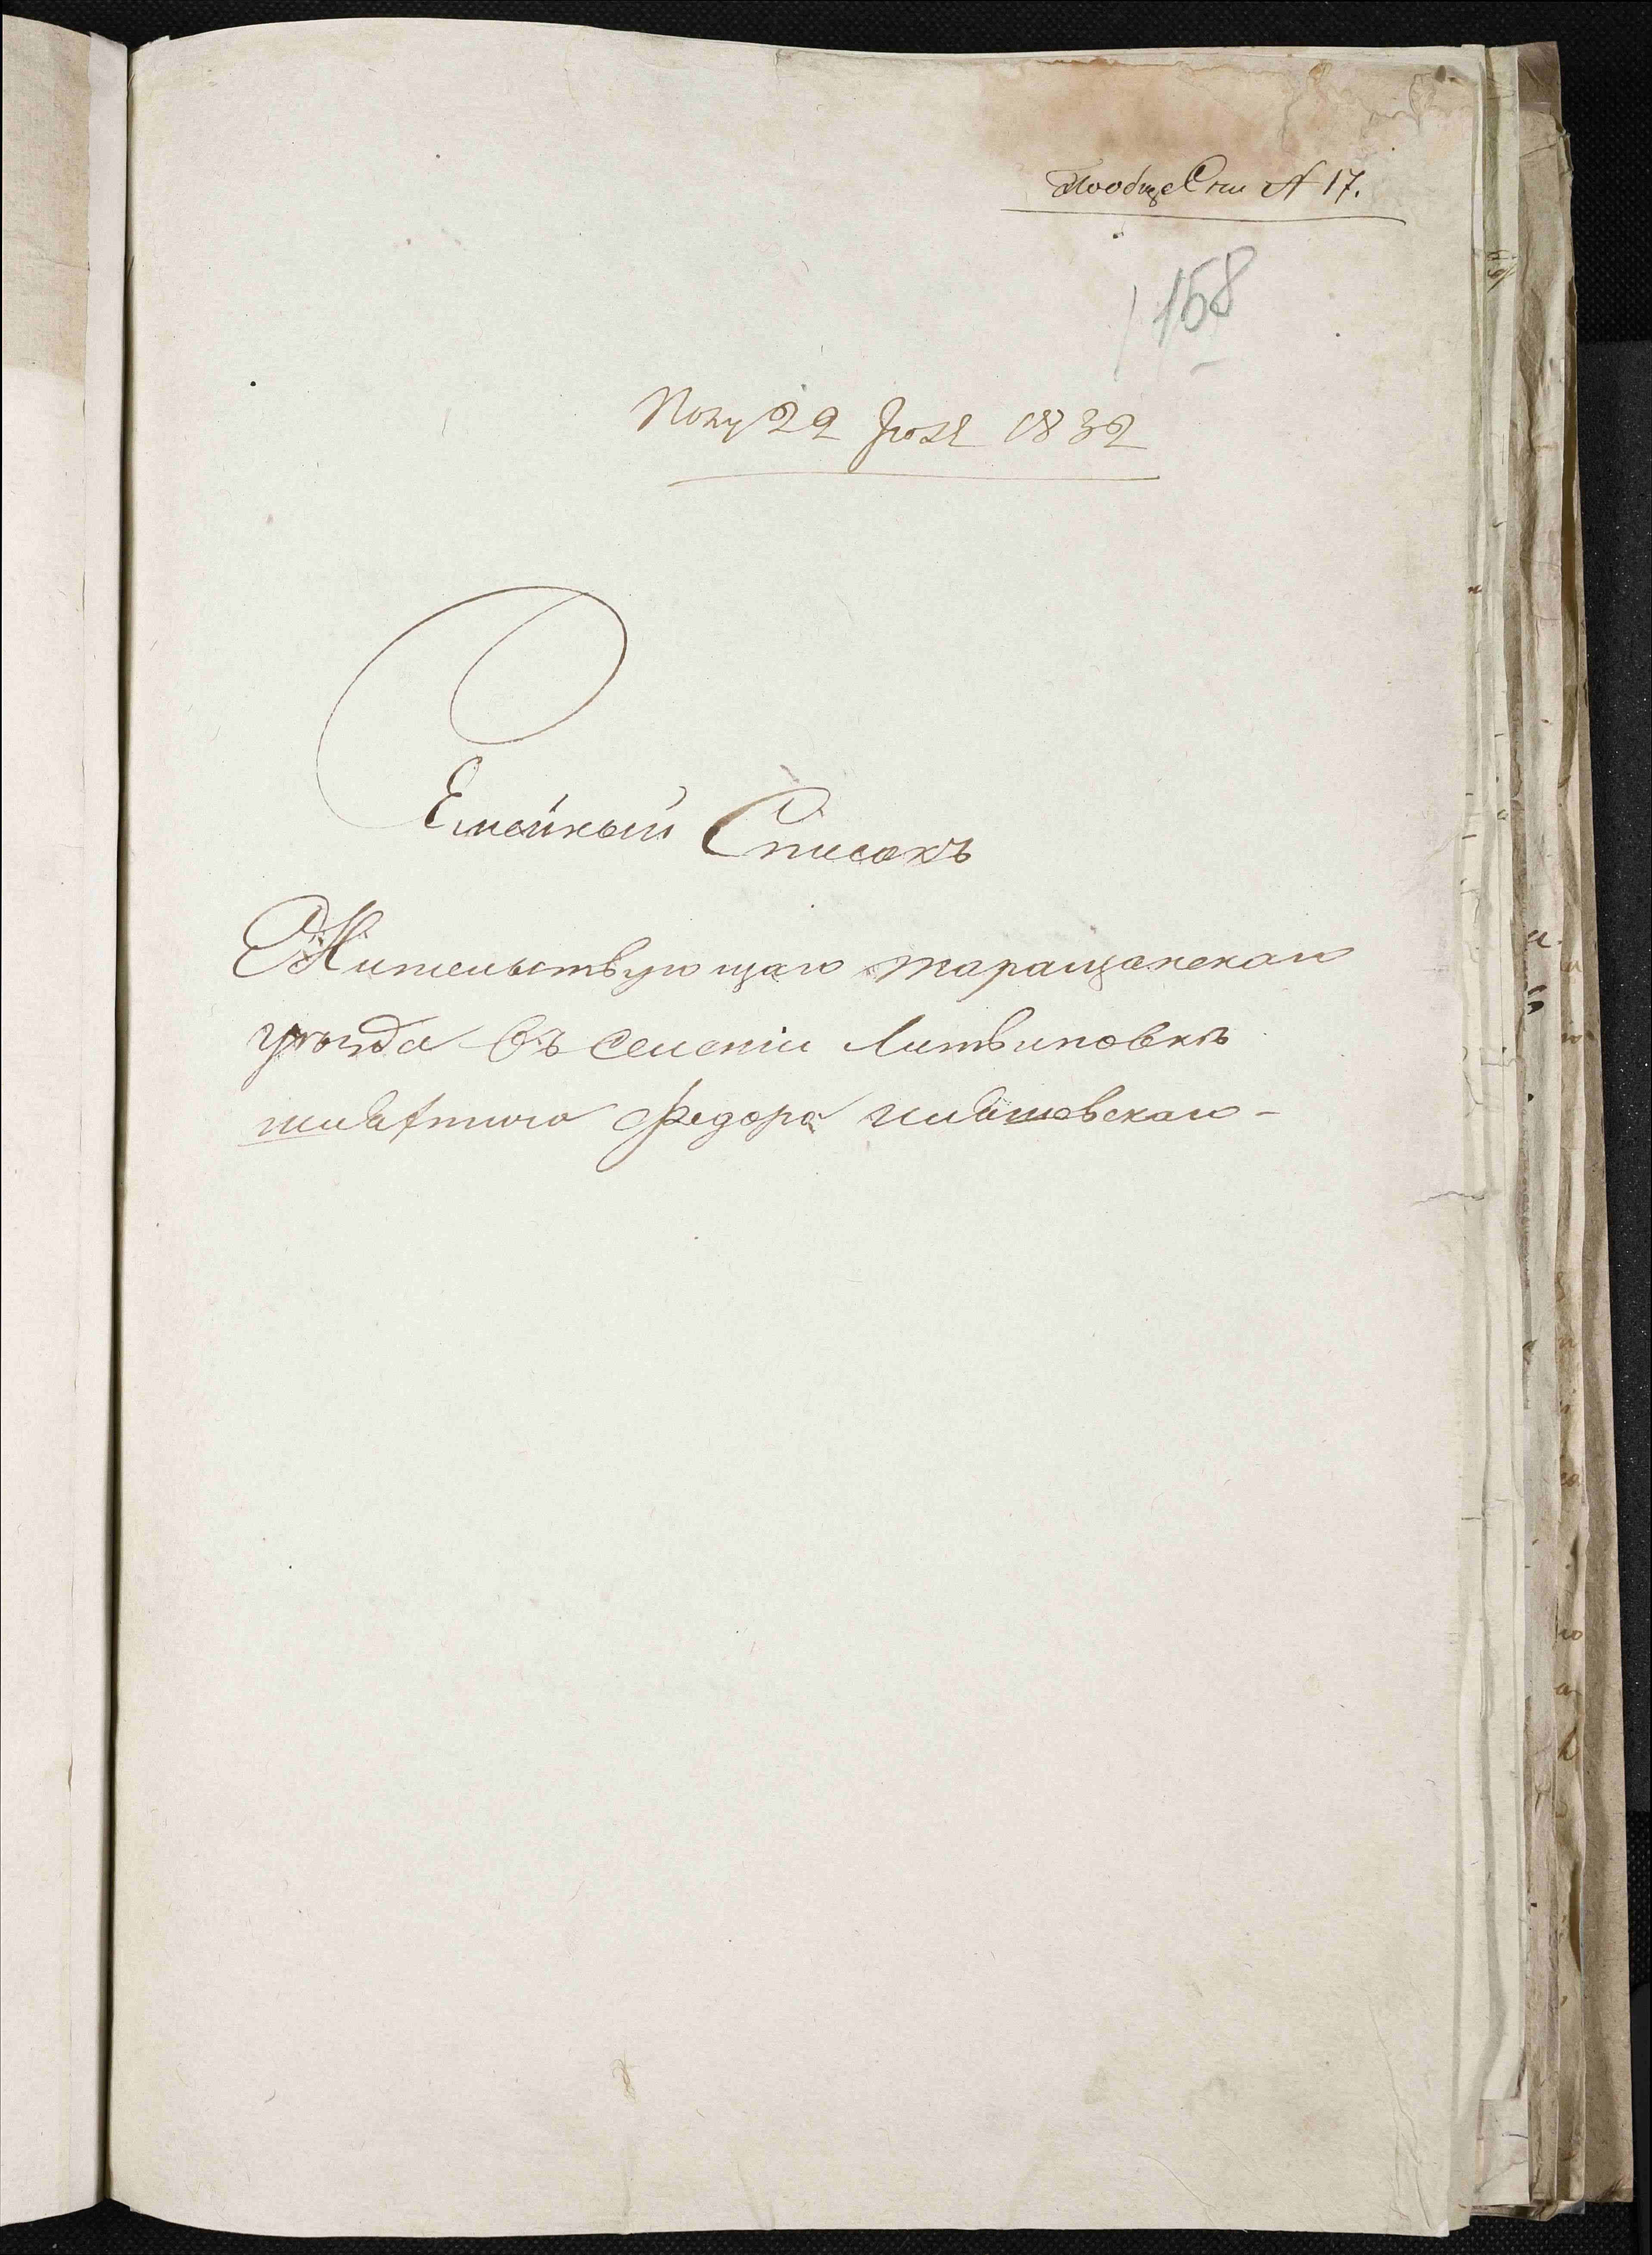 По общес: № 17.
158
Полу 22 Іюля 1832
Семейный Списокъ
Жительствующаго таращанскаго
уѣзда въ селеніи Литвиновкѣ
шляхтича Федора